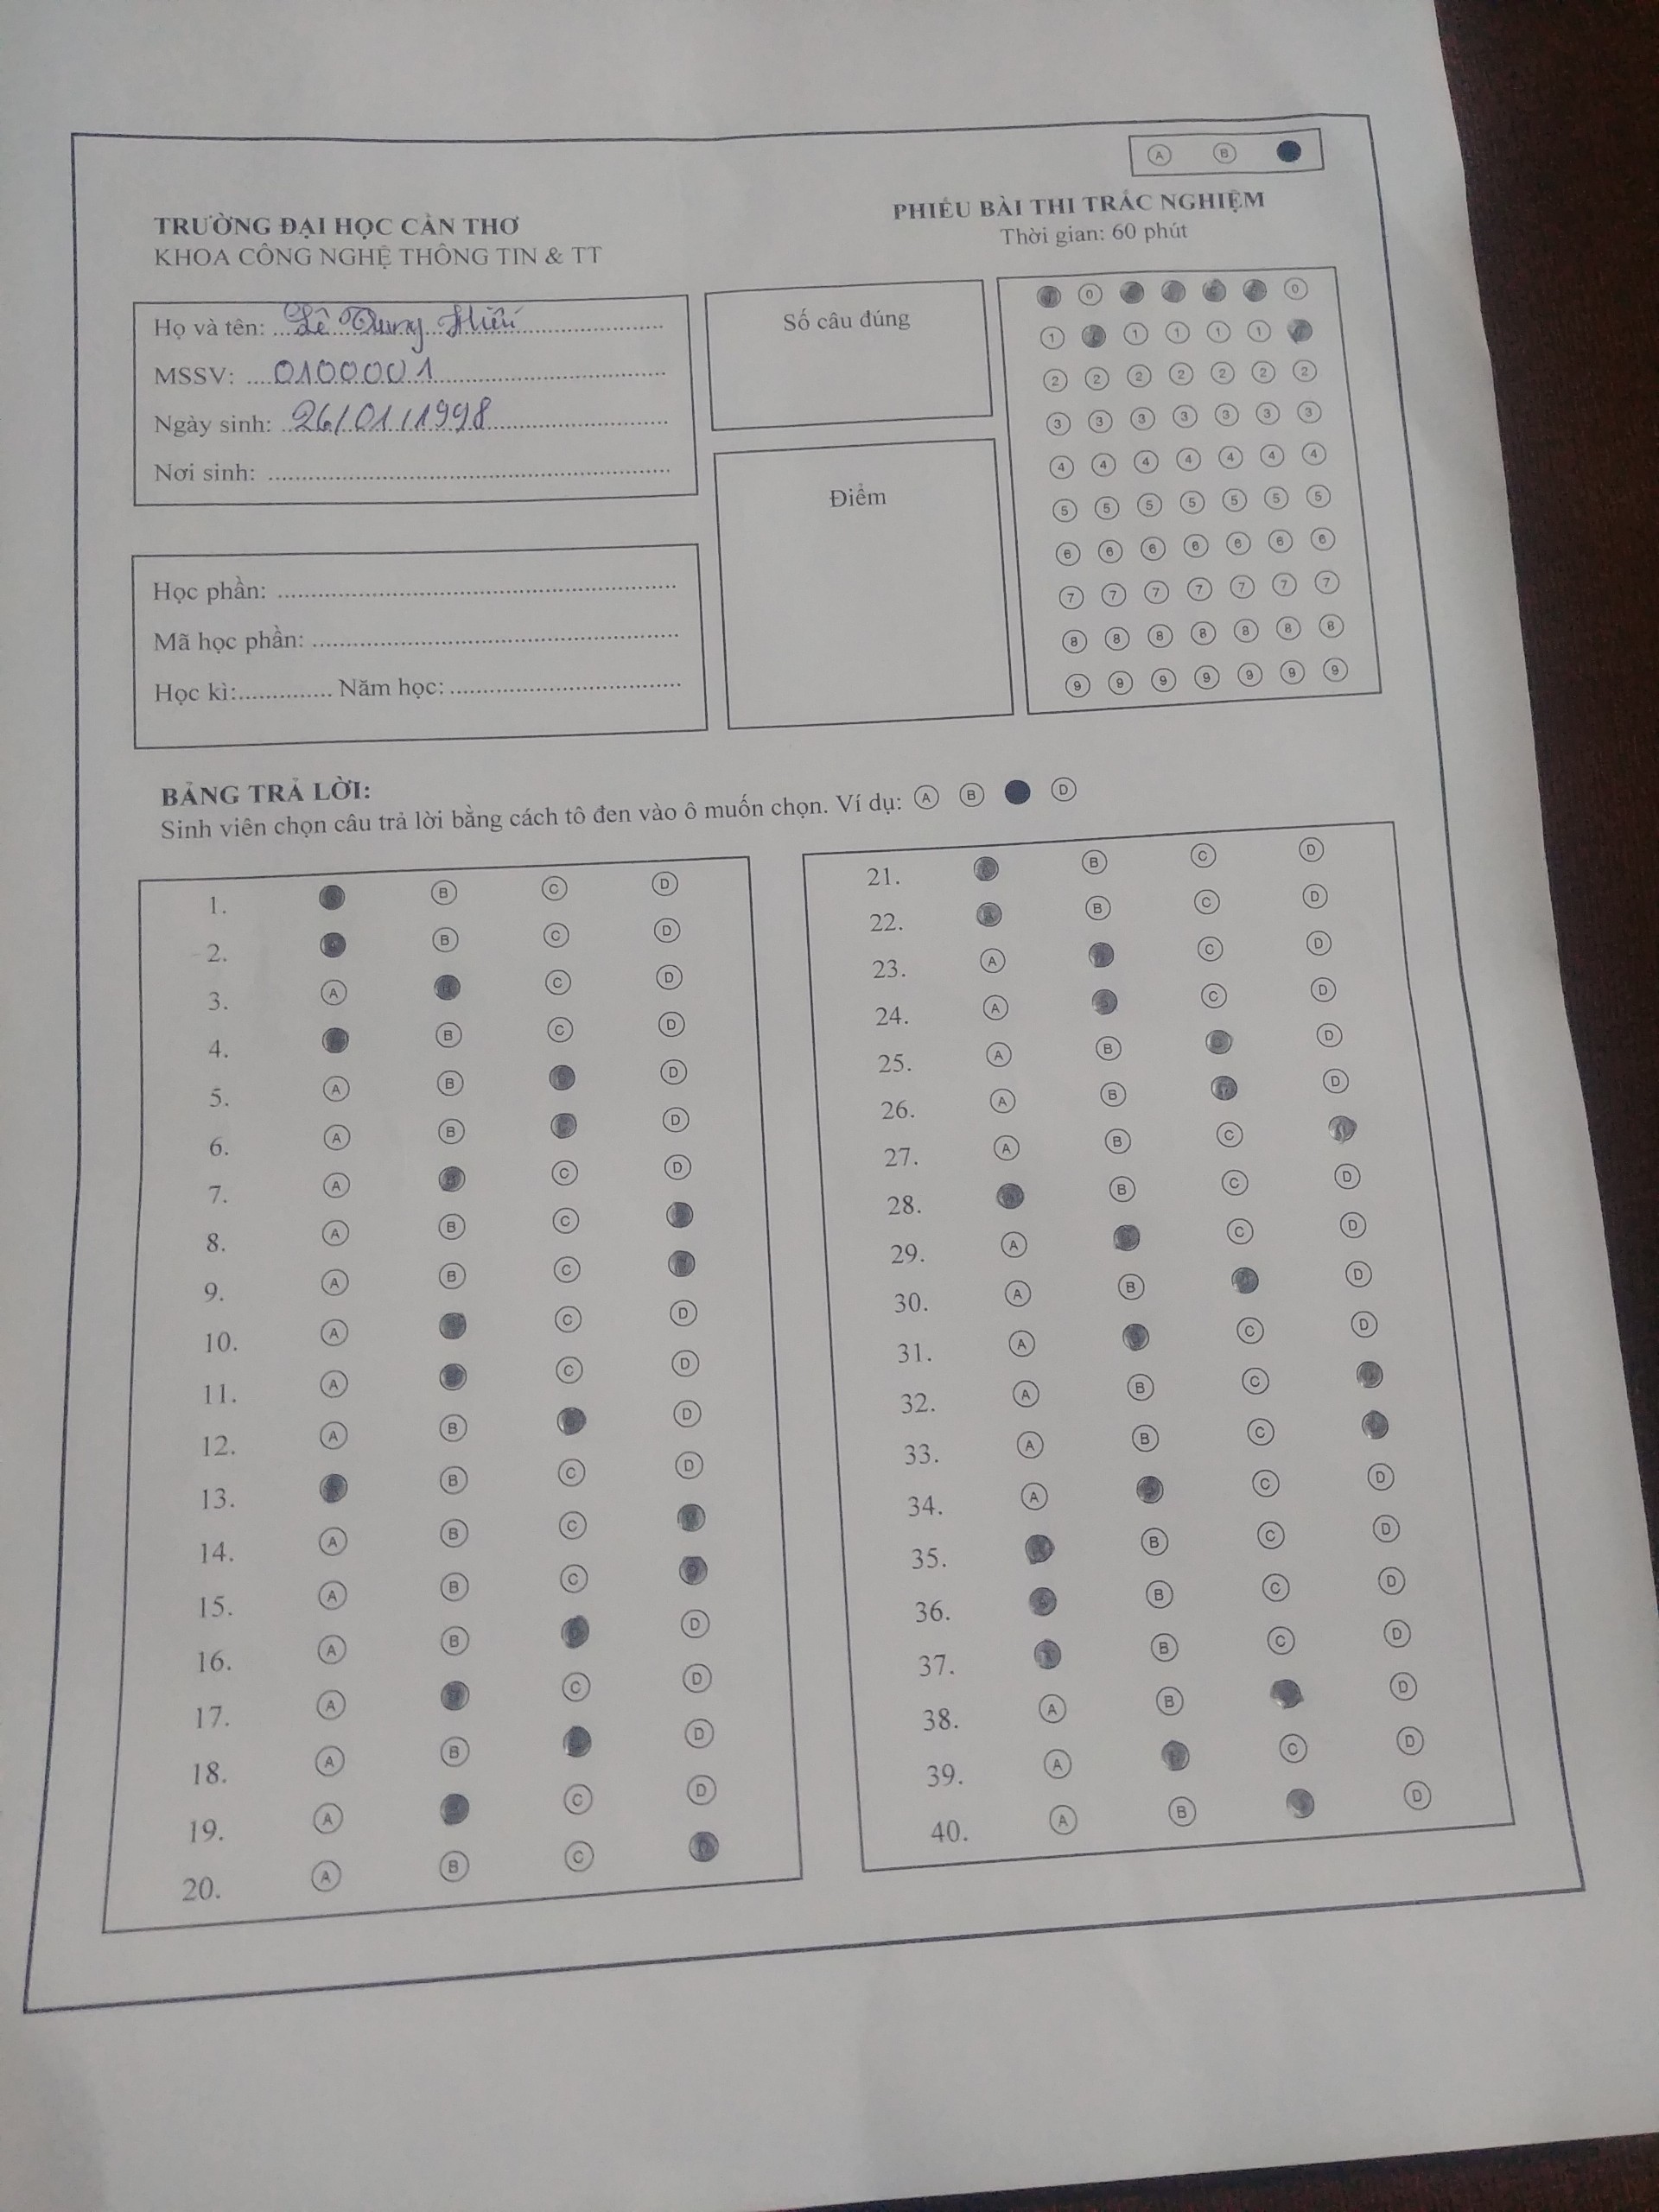 A B
TRƯỜNG ĐẠI HỌC CẦN THƠ
KHOA CÔNG NGHỆ THÔNG TIN & TT
PHIẾU BÀI THI TRẮC NGHIỆM
Thời gian: 60 phút
Họ và tên: Lê Trung Hiếu
MSSV: 0100001
Ngày sinh: 26/01/1998
Nơi sinh:
Học phần:
Mã học phần:
Học kì: Năm học:
Số câu đúng
Điểm
0 0
1 1 1 1 1
2 2 2 2 2 2 2
3 3 3 3 3 3 3
4 4 4 4 4 4 4
5 5 5 5 5 5 5
6 6 6 6 6 6 6
7 7 7 7 7 7 7
8 8 8 8 8 8 8
9 9 9 9 9 9 9
BẢNG TRẢ LỜI:
Sinh viên chọn câu trả lời bằng cách tô đen vào ô muốn chọn. Ví dụ: A B D
1. B C D
2. B C D
3. A C D
4. B C D
5. A B D
6. A B D
7. A C D
8. A B C
9. A B C
10. A C D
11. A C D
12. A B D
13. B C D
14. A B C
15. A B C
16. A B D
17. A C D
18. A B D
19. A C D
20. A B C
21. B C D
22. B C D
23. A C D
24. A C D
25. A B D
26. A B D
27. A B C
28. B C D
29. A C D
30. A B D
31. A C D
32. A B C
33. A B C
34. A C D
35. B C D
36. B C D
37. B C D
38. A B D
39. A C D
40. A B D